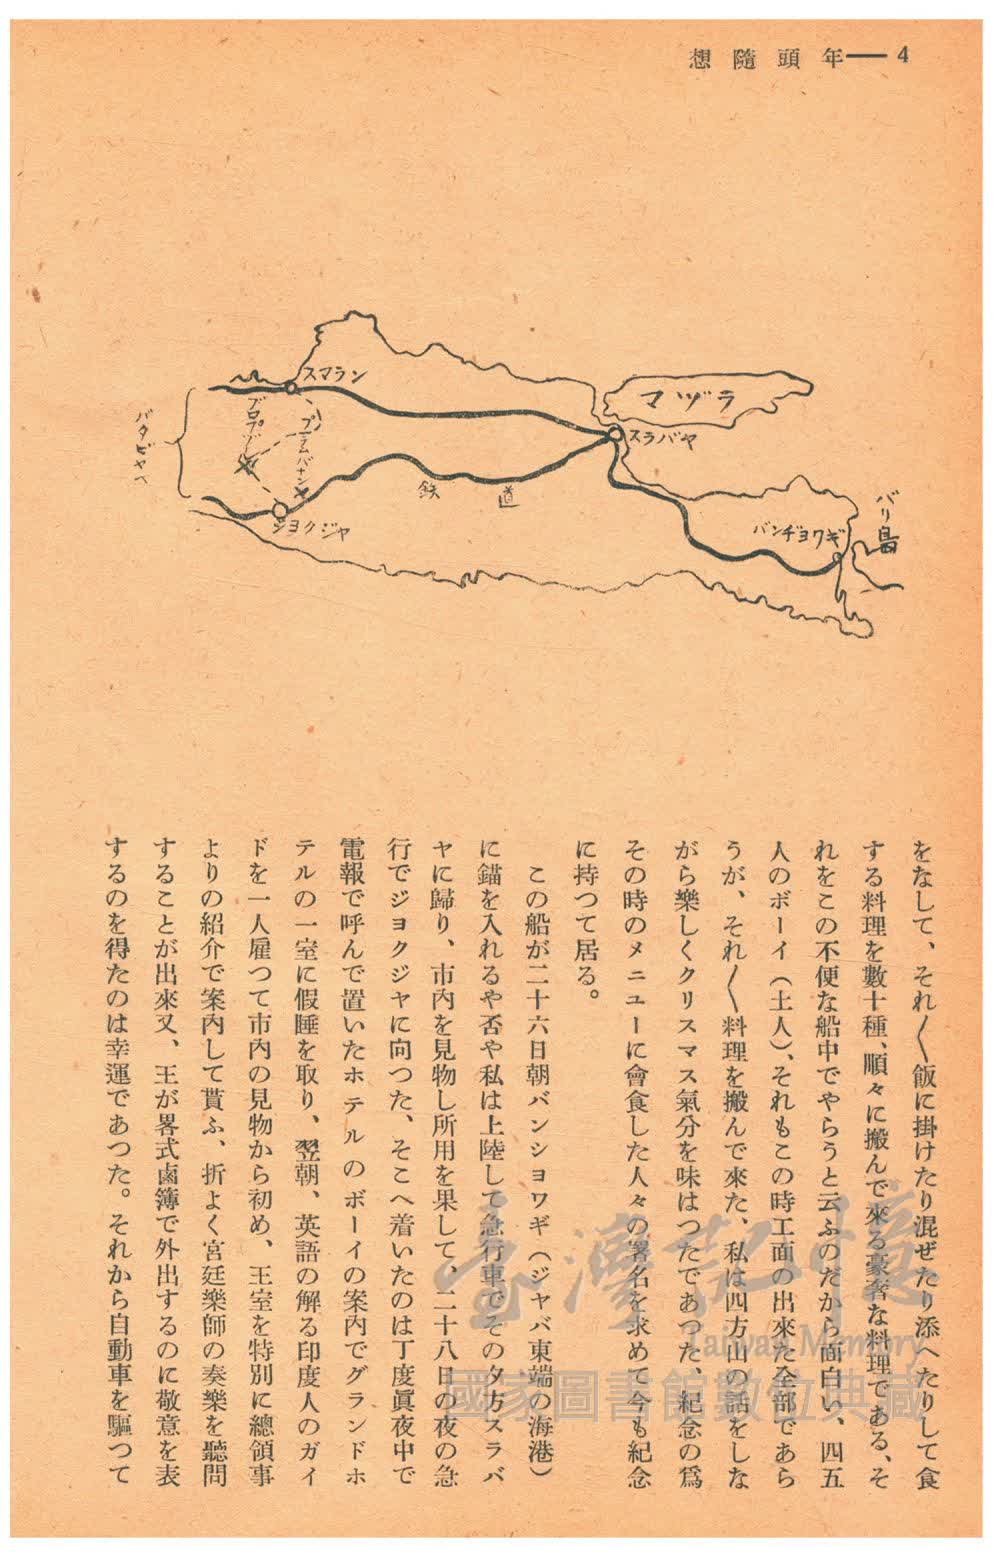 想隨頭年──4
スマラン
マヅラ
スラバヤ
ブロブドゾール
プラムバナン
バタビヤヘ
鉄道
ジヨクジヤ
バンヂヨワギ
バリ島
をなして、それ〲飯に掛けたり混ぜたり添へたりして食
する料理を數十種、順々に搬んで來る豪奢な料理である、そ
れをこの不便な船中でやらうと云ふのだから面白い、四五
人のボーイ（土人）、それもこの時工面の出來た全部であら
うが、それ〲料理を搬んで來た、私は四方山の話をしな
がら樂しくクリスマス氣分を味はつたであつた、紀念の爲
その時のメニユーに會食した人々の署名を求めて今も紀念
に持つて居る。
この船が二十六日朝バンシヨワギ（ジヤバ東端の海港）
に錨を入れるや否や私は上陸して急行車でその夕方スラバ
ヤに歸り、市內を見物し所用を果して、二十八日の夜の急
行でジヨクジヤに向つた、そこへ着いたのは丁度眞夜中で
電報で呼んで置いたホテルのボーイの案內でグランドホ
テルの一室に假睡を取り、翌朝、英語の解る印度人のガイ
ドを一人雇つて市內の見物から初め、王室を特別に總領事
よりの紹介で案內して貰ふ、折よく宮廷樂師の奏樂を聽問
することが出來又、王が畧式鹵簿で外出するのに敬意を表
するのを得たのは幸運であつた。それから自動車を驅つて
臺灣記憶
Taiwan Memory
國家圖書館數位典藏